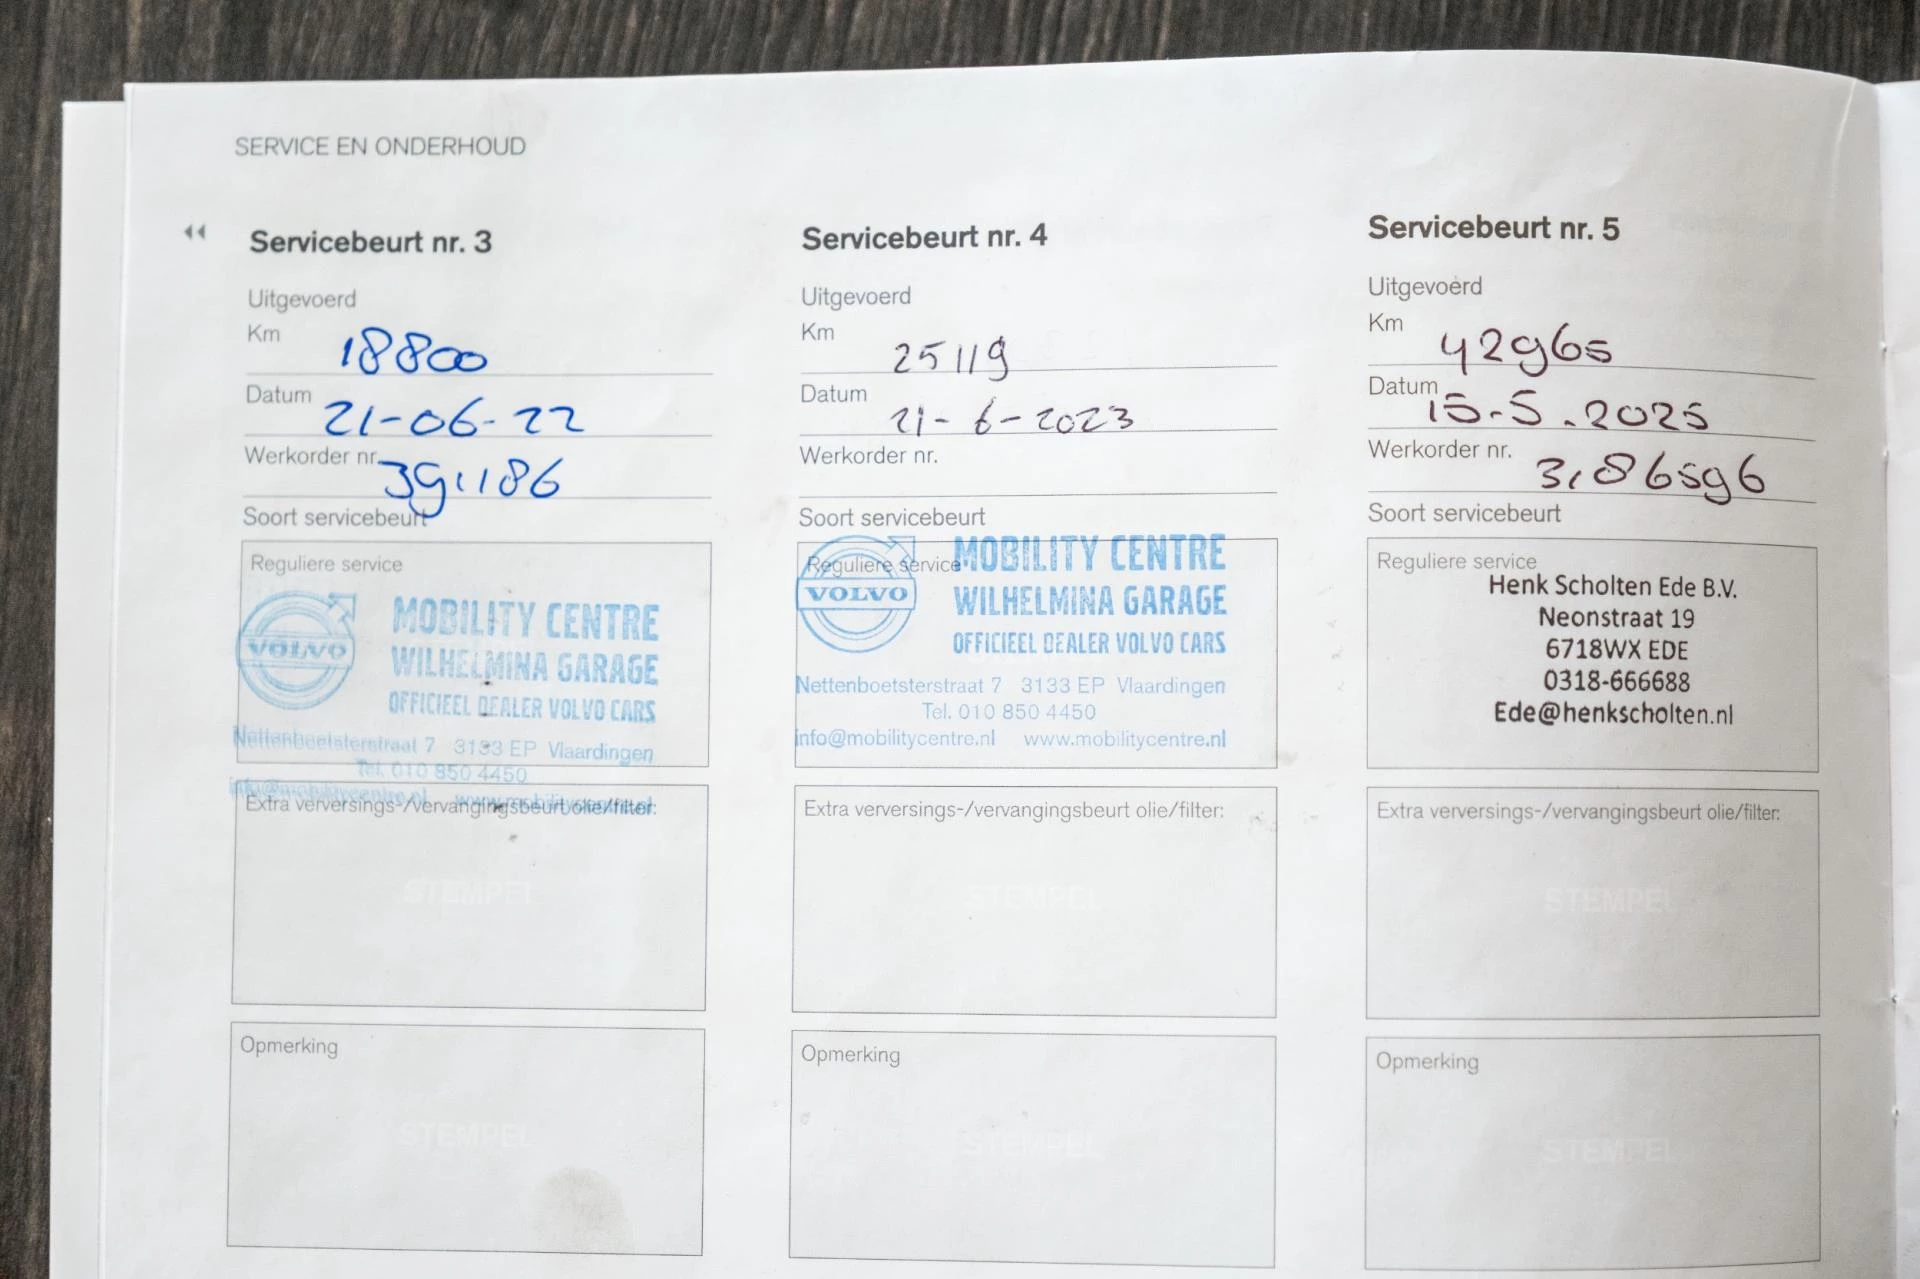 SERVICE EN ONDERHOUD
Servicebeurt nr. 3
Uitgevoerd
Km 18800
Datum 21-06-22
Werkorder nr. 391186
Soort servicebeurt
Reguliere service
VOLVO
MOBILITY CENTRE
WILHELMINA GARAGE
OFFICIEEL DEALER VOLVO CARS
Nettenboetsterstraat 7 3133 EP Vlaardingen
Tel. 010 850 4450
info@mobilitycentre.nl www.mobilitycentre.nl
Extra verversings-/vervangingsbeurt olie/filter:
STEMPEL
Opmerking
STEMPEL
Servicebeurt nr. 4
Uitgevoerd
Km 25119
Datum 21-6-2023
Werkorder nr.
Soort servicebeurt
Reguliere service
VOLVO
MOBILITY CENTRE
WILHELMINA GARAGE
OFFICIEEL DEALER VOLVO CARS
Nettenboetsterstraat 7 3133 EP Vlaardingen
Tel. 010 850 4450
info@mobilitycentre.nl www.mobilitycentre.nl
Extra verversings-/vervangingsbeurt olie/filter:
STEMPEL
Opmerking
STEMPEL
Servicebeurt nr. 5
Uitgevoerd
Km 42965
Datum 15-5.2025
Werkorder nr. 3186596
Soort servicebeurt
Reguliere service
Henk Scholten Ede B.V.
Neonstraat 19
6718WX EDE
0318-666688
Ede@henkscholten.nl
Extra verversings-/vervangingsbeurt olie/filter:
STEMPEL
Opmerking
STEMPEL